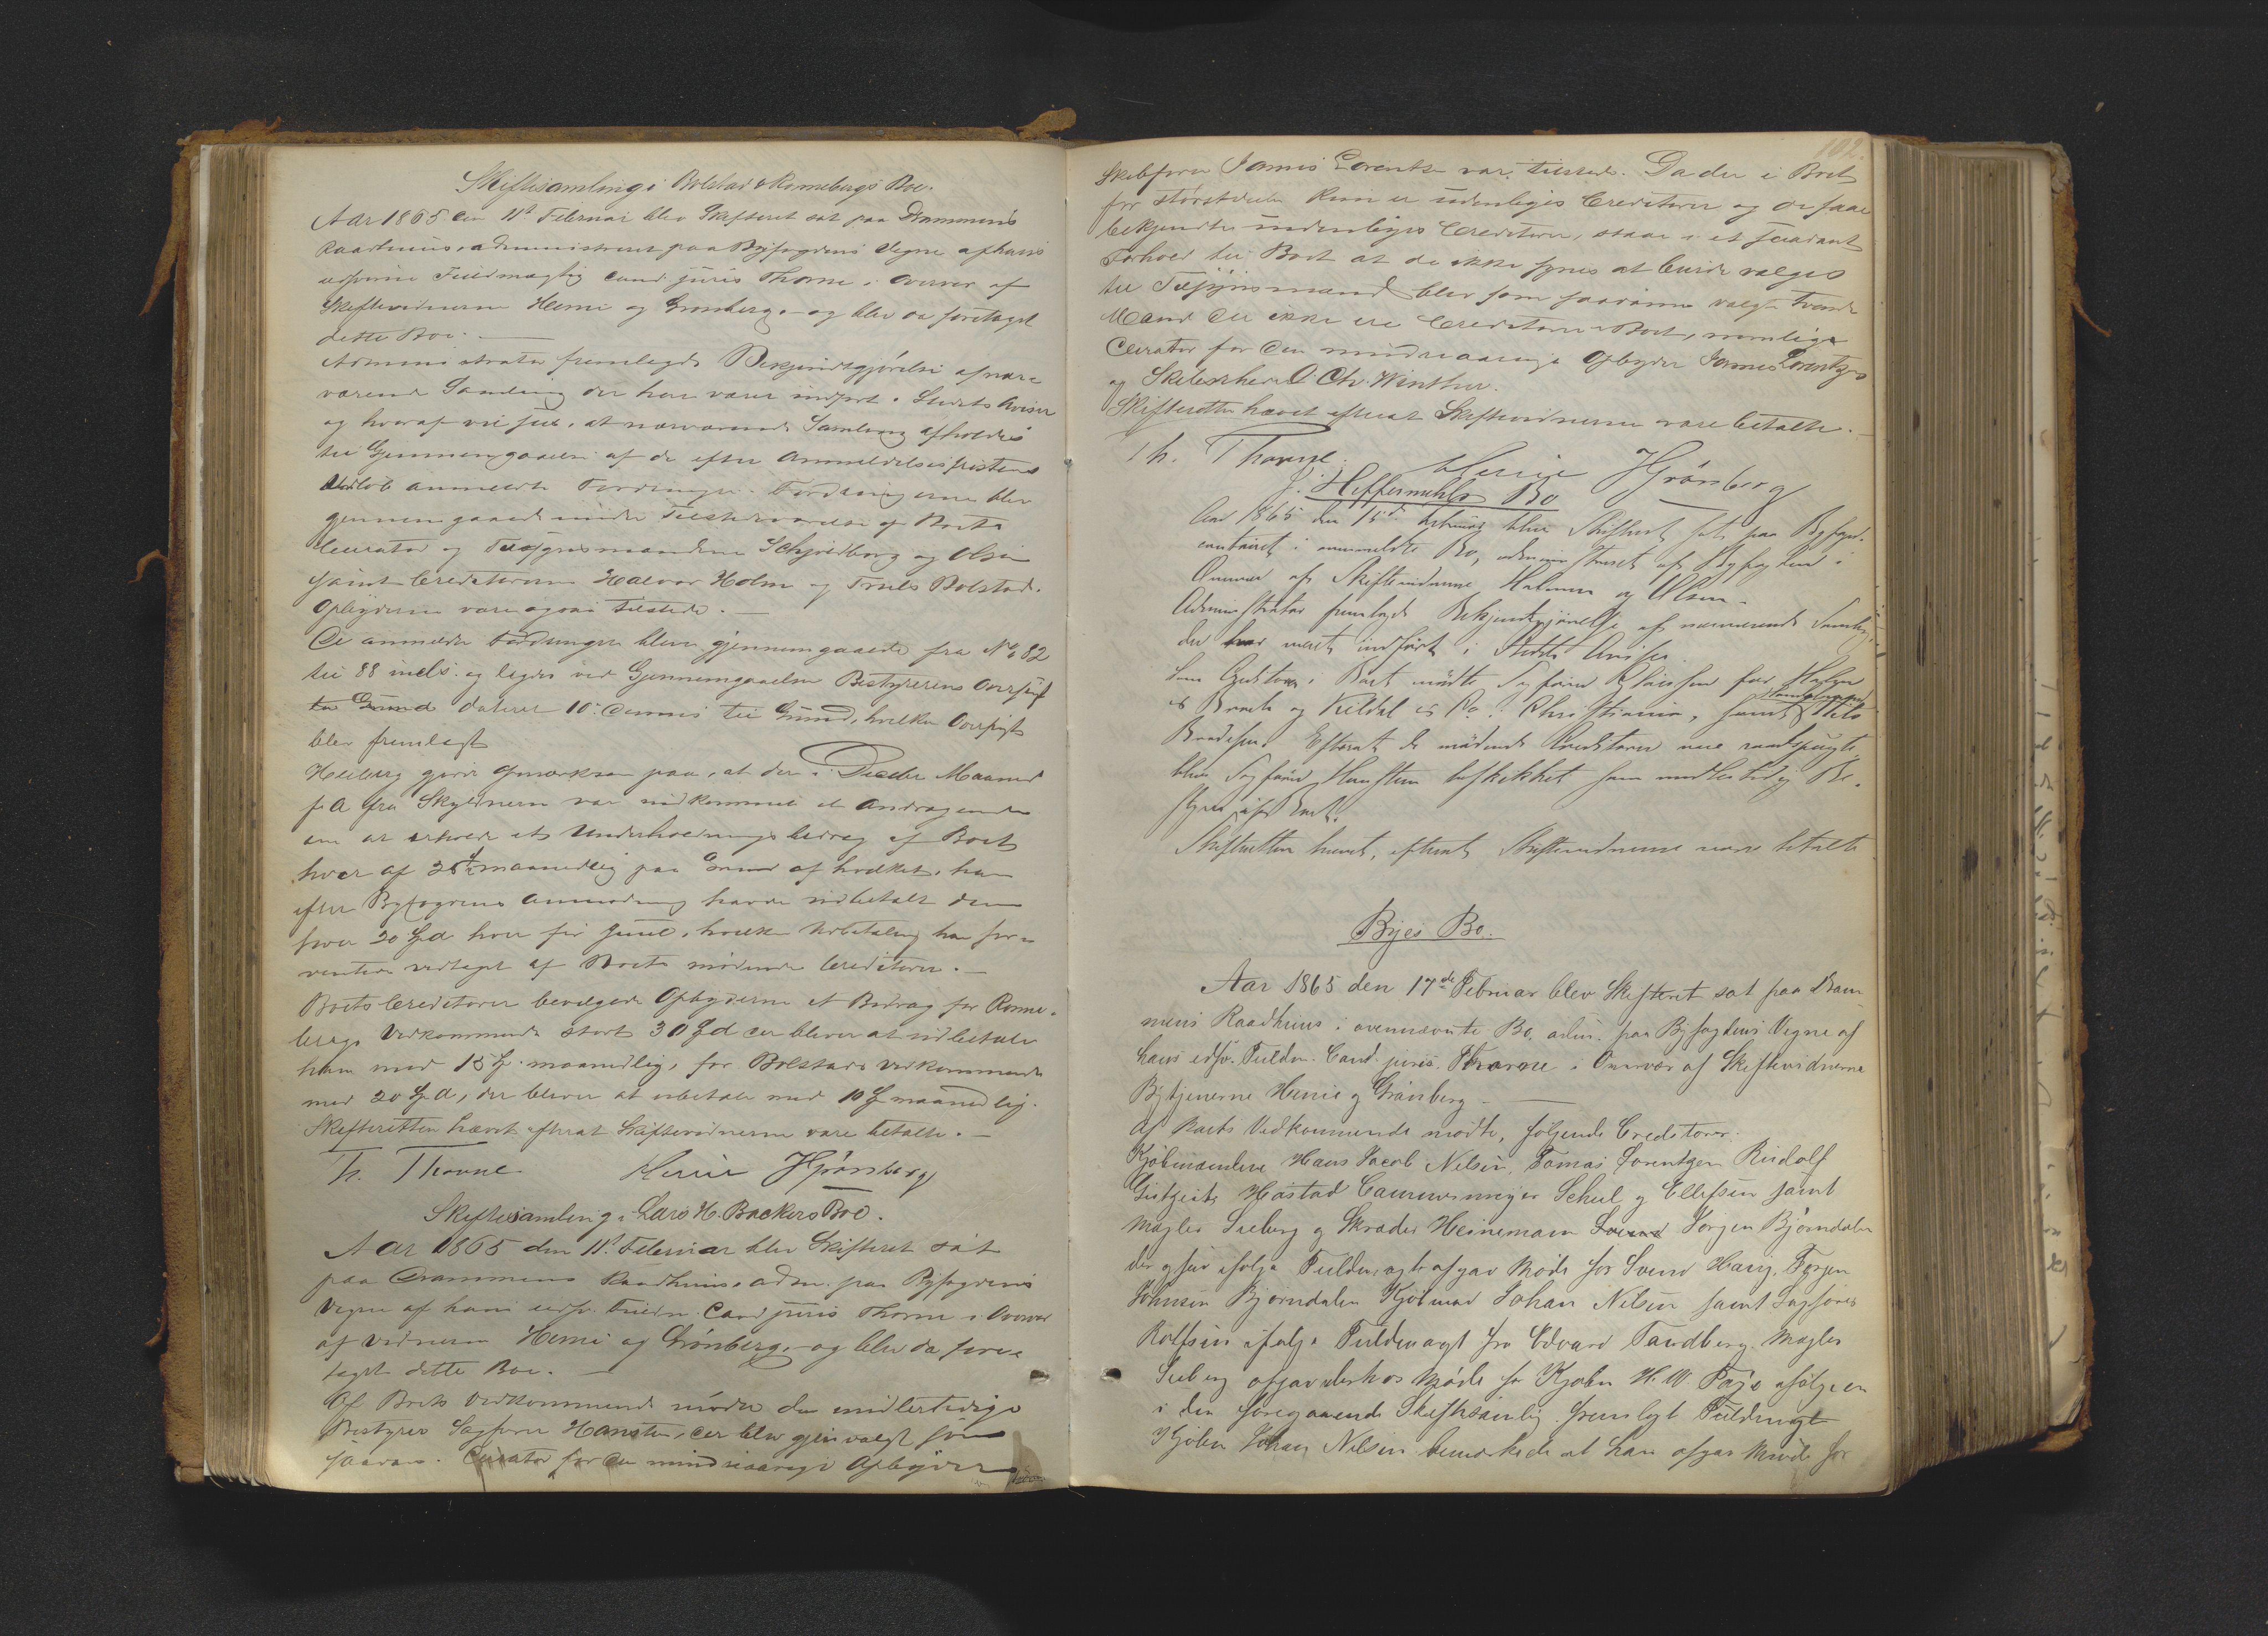 Skiftesamling i Bolstad & Ronnebergs Boe.
Aar 1865 den 11te Februar blev Skifteret sat paa Drammens
Raadhuus, administreret paa Byfogdens Vegne af hans
edsvorne Fuldmægtig cand juris Thorne i Overvær af
Skiftevidnerne Henie og Grønberg. - og blev da foretaget
dette Boe. -
Administrator fremlagde Bekjendtgjørelse af nær-
værende Samling der har været indført i Stedets Aviser
og hvoraf vil sees, at nærværende Samling afholdes
til Gjennemgaaelse af de efter Anmeldelsesfristens
Udløb anmeldte Fordringer. Fordringerne blev
gjennemgaaede under Tilstedeværelse af Boets
Curator og Tilsynsmændene Schjoldborg og Olsen
samt Creditorerne Halvor Holm og Truls Bolstad.
Opbyderne vare ogsaa tilstede. -
De anmeldte Fordringer bleve gjennemgaaede fra No 82
til 88 incls. og lagdes ved Gjennemgaaelsen Bestyrerens Oversigt
dateret 10. dennes til Grund, hvilken Oversigt
blev fremlagt
Heiberg gjorde opmærksom paa, at der i Maaned
f A fra Skyldnerne var indkommet et Andragende
om at erholde et Underholdnings bidrag af Boet
hver af 25 maanedlig paa Grund af hvilket, han
efter Byfogdens Anmodning havde udbetalt dem
hver 20 Spd hver før Juul, hvilken Udbetaling han for-
ventede vedtaget af Boets mødende Creditorer. -
Boets Creditorer bevilgede Opbyderne et Bidrag for Ronne-
bergs Vedkommende stort 30 Spd der bliver at udbetale
ham med 15 Sp. maanedlig, for Bolstads Vedkommende
med 20 Spd, der bliver at udbetale med 10 Sp maanedlig.
Skifteretten hævet efterat Skiftevidnerne vare betalte. -
Th. Thorne Henie HGrønberg
Skiftesamling i Lars H. Backers Boe.
Aar 1865 den 11te Februar blev Skifteret sat
paa Drammens Raadhuus, adm. paa Byfogdens
Vegne af hans edsv. Fuldm. Cand juris Thorne i Overvær
af Vidnerne Henie og Grönberg, - og blev da fore-
taget dette Boe. -
Af Boets Vedkommende mødte den midlertidige
Bestyrer Sagfører Hansten, der blev gjenvalgt som
saadan. Curator for den mindreaarige Opbyder
102.
Skibsfører Jamis Lorentzen var tilstede. Da der i Boet
for størstedelen kun er udenbyes Creditorer og de faae
bekjendte indenbyes Creditorer, staar i et saadant
Forhold til Boet at de ikke synes at burde vælges
til Tilsynsmænd blev som saadanne valgte tvende
Mænd der ikke ere Creditorer i Boet, nemlig
Curator for den mindreaarige Opbyder Jamis Lorentzen
og Skibsrheder O Chr. Winther.
Skifteretten hævet efterat Skiftevidnerne vare betalte. -
Th. Thorne. Henie HGrönberg
J. Heffermehls Bo
Aar 1865 den 15de Februar blev Skifteret sat paa Byfogd-
contoiret i anmeldte Bo, administreret af Byfogden i
Overvær af Skiftevidnerne Halvorsen og Olsen. -
Administrator fremlagde Bekjendtgjørelse af nærværende Samling,
der har været indført i Stedets Aviser.
Som Creditorer i Boet mødte Sagfører Claussen for
& Kildal & Co. Christiania, samt Handelsmand Nils
Bendixen. Efterat de mødende Creditorer vare raadspurgte,
blev Sagfører Hansteen beskikket som midlertidig Be-
styrer af Boet.
Skifteretten hævet, efterat Skiftevidnerne vare betalte
Byes Bo.
Aar 1865 den 17de Februar blev Skifteret sat paa Dram-
mens Raadhuus i ovennævnte Bo, adm. paa Byfogdens Vegne af
hans edsv. Fuldm. Cand. juris. Thorne i Overvær af Skiftevidnerne
Bytjenerne Henie og Grönberg -
Af Boets Vedkommende mødte, følgende Creditorer:
Kjøbmændene Hans Jacob Nilsen, Tomas Lorentzen Rudolf
Gutzeit, Hastad Cammermeyer Schul og Ellefsen samt
Mægler Sieberg og Skræder Heinemann Svend Jørgen Bjørndalen
der ogsaa ifølge Fuldmagt afgav Møde for Svend Haug, Jørgen
Johnsen Bjørndalen Kjøbmand Johan Nilsen samt Sagfører
Rolfsen ifølge Fuldmagt fra Edvard Tandberg. Mægler
Sieberg afgav derhos Møde for Kjøbm H. W. ifølge en
i den foregaaende Skiftesamling fremlagt Fuldmagt
Kjøbm Johan Nilsen bemærkede at han afgav Møde for